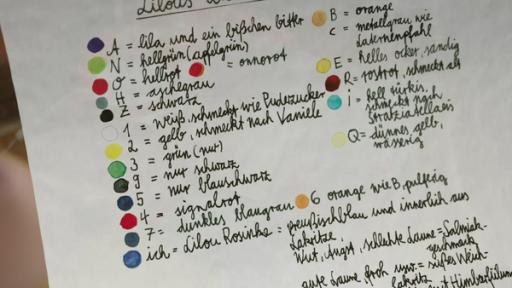 Lilous
A = lila und ein bißchen bitter
N = hellgrün (apfelgrün)
O = hellrot = onnorot
H = aschgrau
Z = schwarz
1 = weiß, schmeckt wie Puderzucker
2 = gelb, schmeckt nach Vanille
3 = grün (nur)
8 = nur schwarz
9 = nur blauschwarz
5
4 = signalrot
7 = dunkles blaugrau
6 orange wie B, pulfrig
ich = Lilou Rosinke = preußischblau und innerlich aus
Lakritze,
Wut, Angst, schlechte Laune = Salmiak-
geschmack
gute Laune, froh usw. = süßes Weich-
lakritz mit Himbeerfüllung
B = orange
C = metallgrau wie
Laternenpfahl
E = helles ocker, sandig
R = rostrot, schmeckt als
i = hell türkis,
schmeckt nach
Stracciatellaeis
Q = dünnes gelb,
wässerig